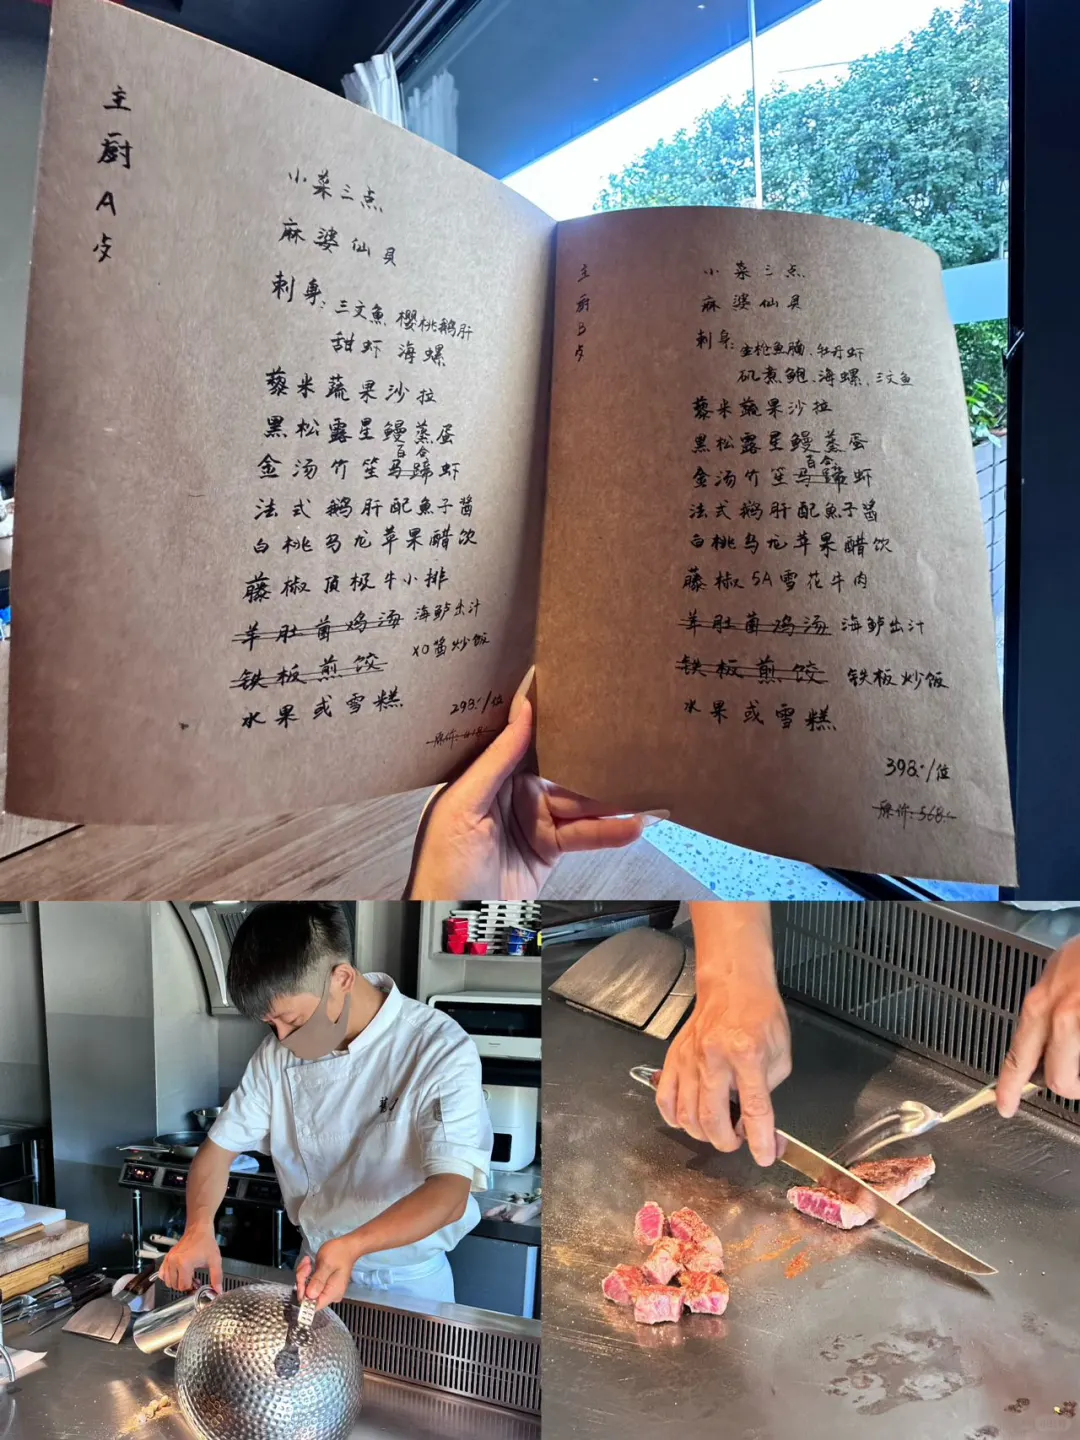 主厨A
小菜三点
麻婆仙贝
刺身：三文魚 樱桃鹅肝
甜虾 海螺
藜米蔬果沙拉
黑松露星鳗蒸蛋
百合
金汤竹笙马蹄虾
法式鹅肝配魚子酱
白桃乌龙苹果醋饮
藤椒頂极牛小排
羊肚菌鸡汤 海鲈出汁
铁板煎饺 XO酱炒饭
水果或雪糕
298.-/位
主厨B
小菜三点
麻婆仙贝
刺身：金枪魚腩、牡丹虾
矶煮鲍、海螺、三文鱼
藜米蔬果沙拉
黑松露星鳗蒸蛋
百合
金汤竹笙马蹄虾
法式鹅肝配魚子酱
白桃乌龙苹果醋饮
藤椒5A雪花牛肉
羊肚菌鸡汤 海鲈出汁
铁板煎饺 铁板炒饭
水果或雪糕
398.-/位
原价：568.-